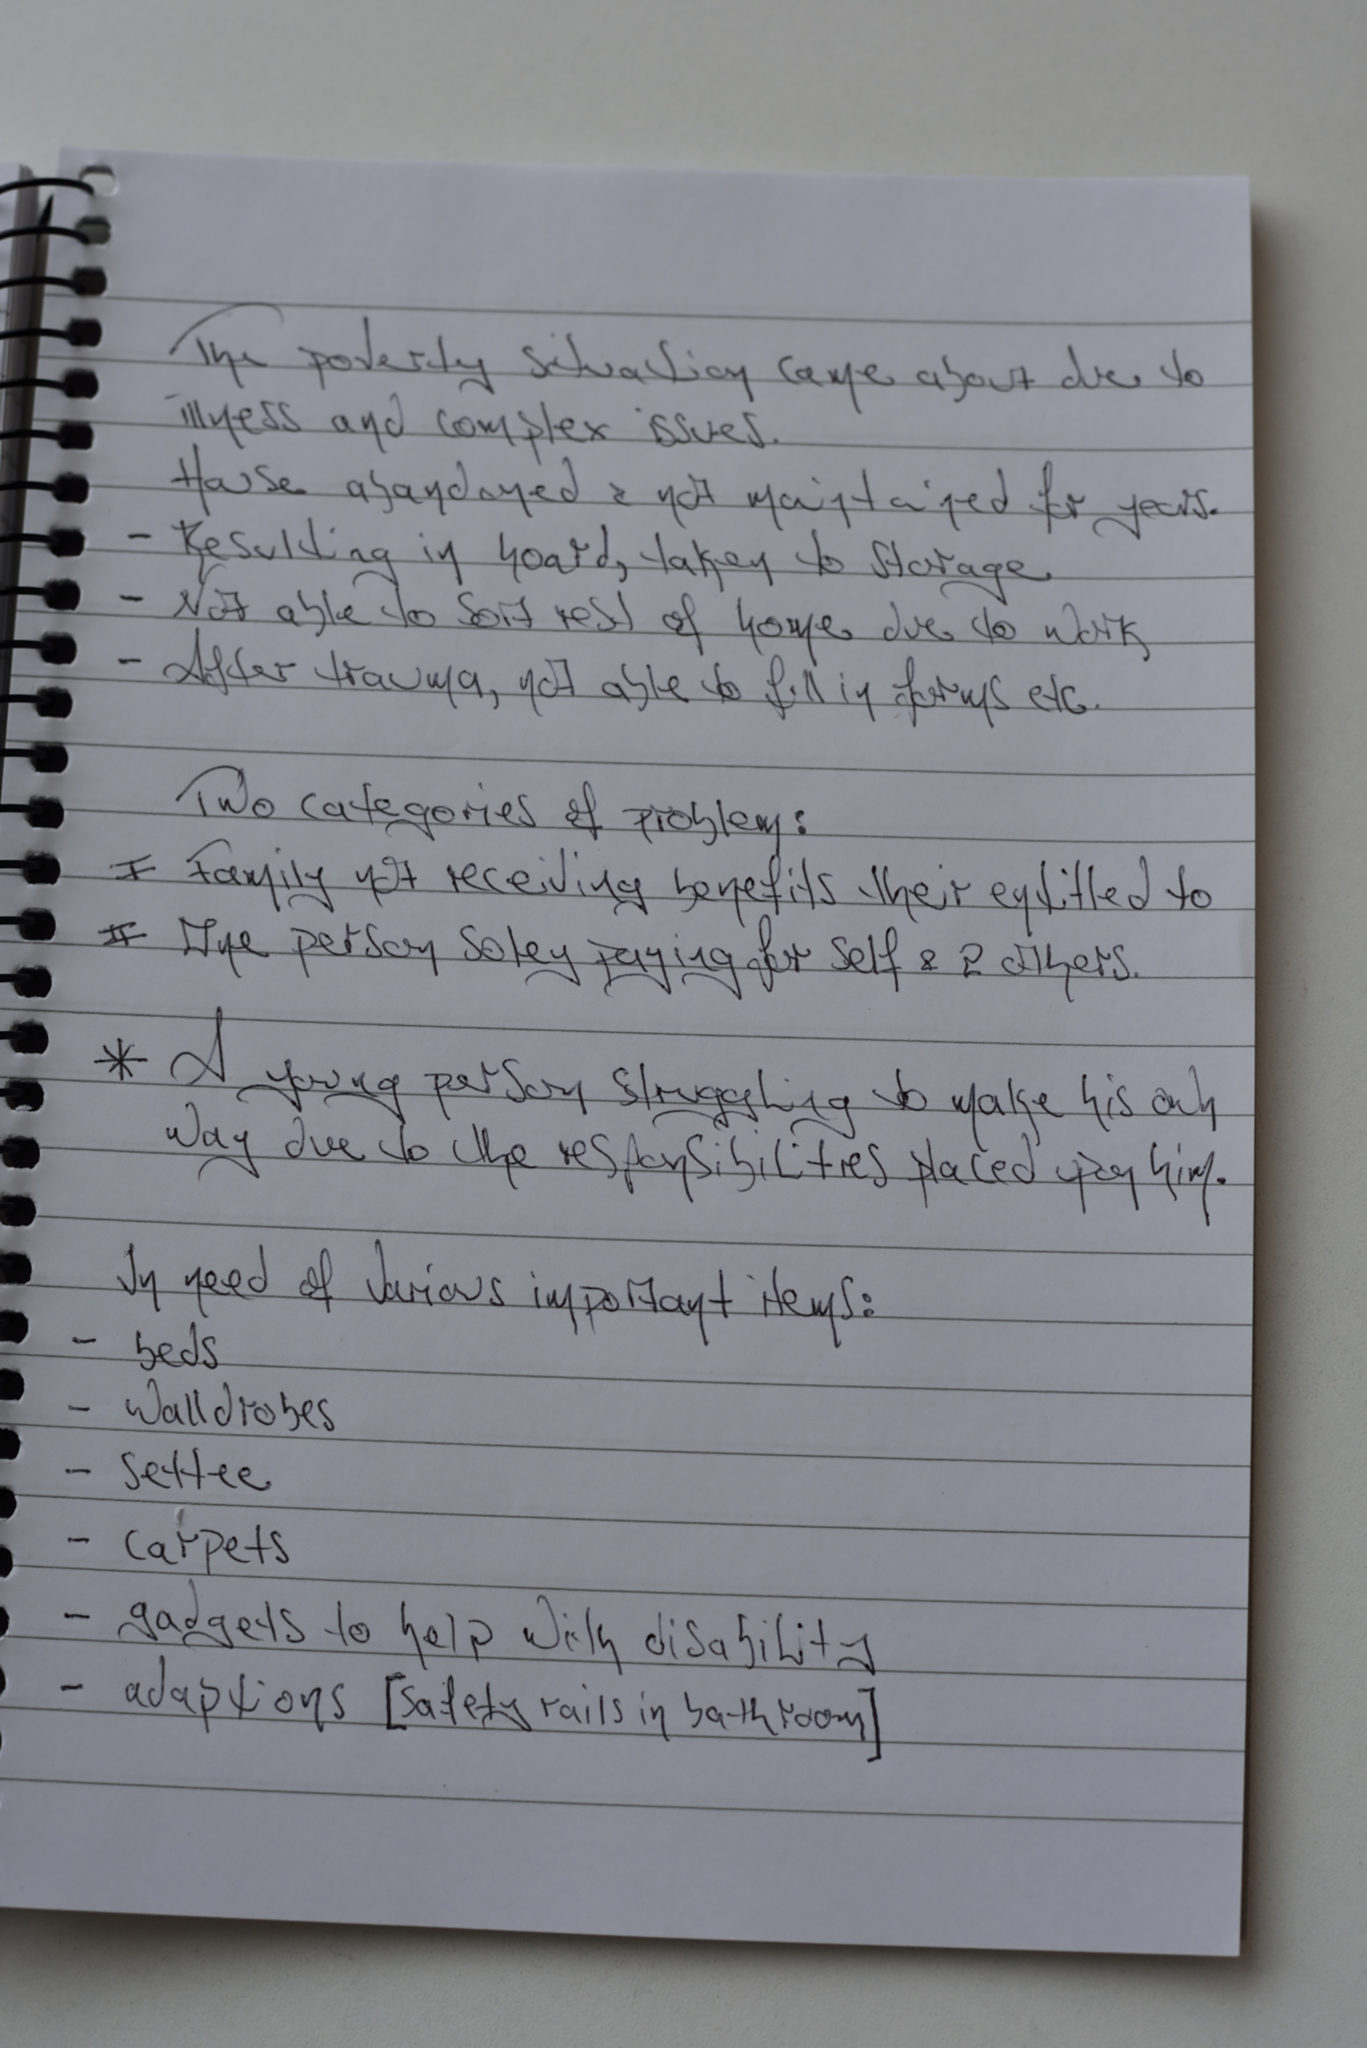 The poverty situation came about due to
illness and complex issues.
House abandoned & not maintained for years.
- Resulting in hoard, taken to storage
- Not able to sort rest of home due to work
- After trauma, not able to fill in forms etc.
Two categories of problem:
I Family not receiving benefits their entitled to
II One person soley paying for self & 2 others.
* A young person struggling to make his own
way due to the responsibilities placed upon him.
In need of various important items:
- beds
- walldrobes
- settee
- carpets
- gadgets to help with disability
- adaptions [safety rails in bathroom]